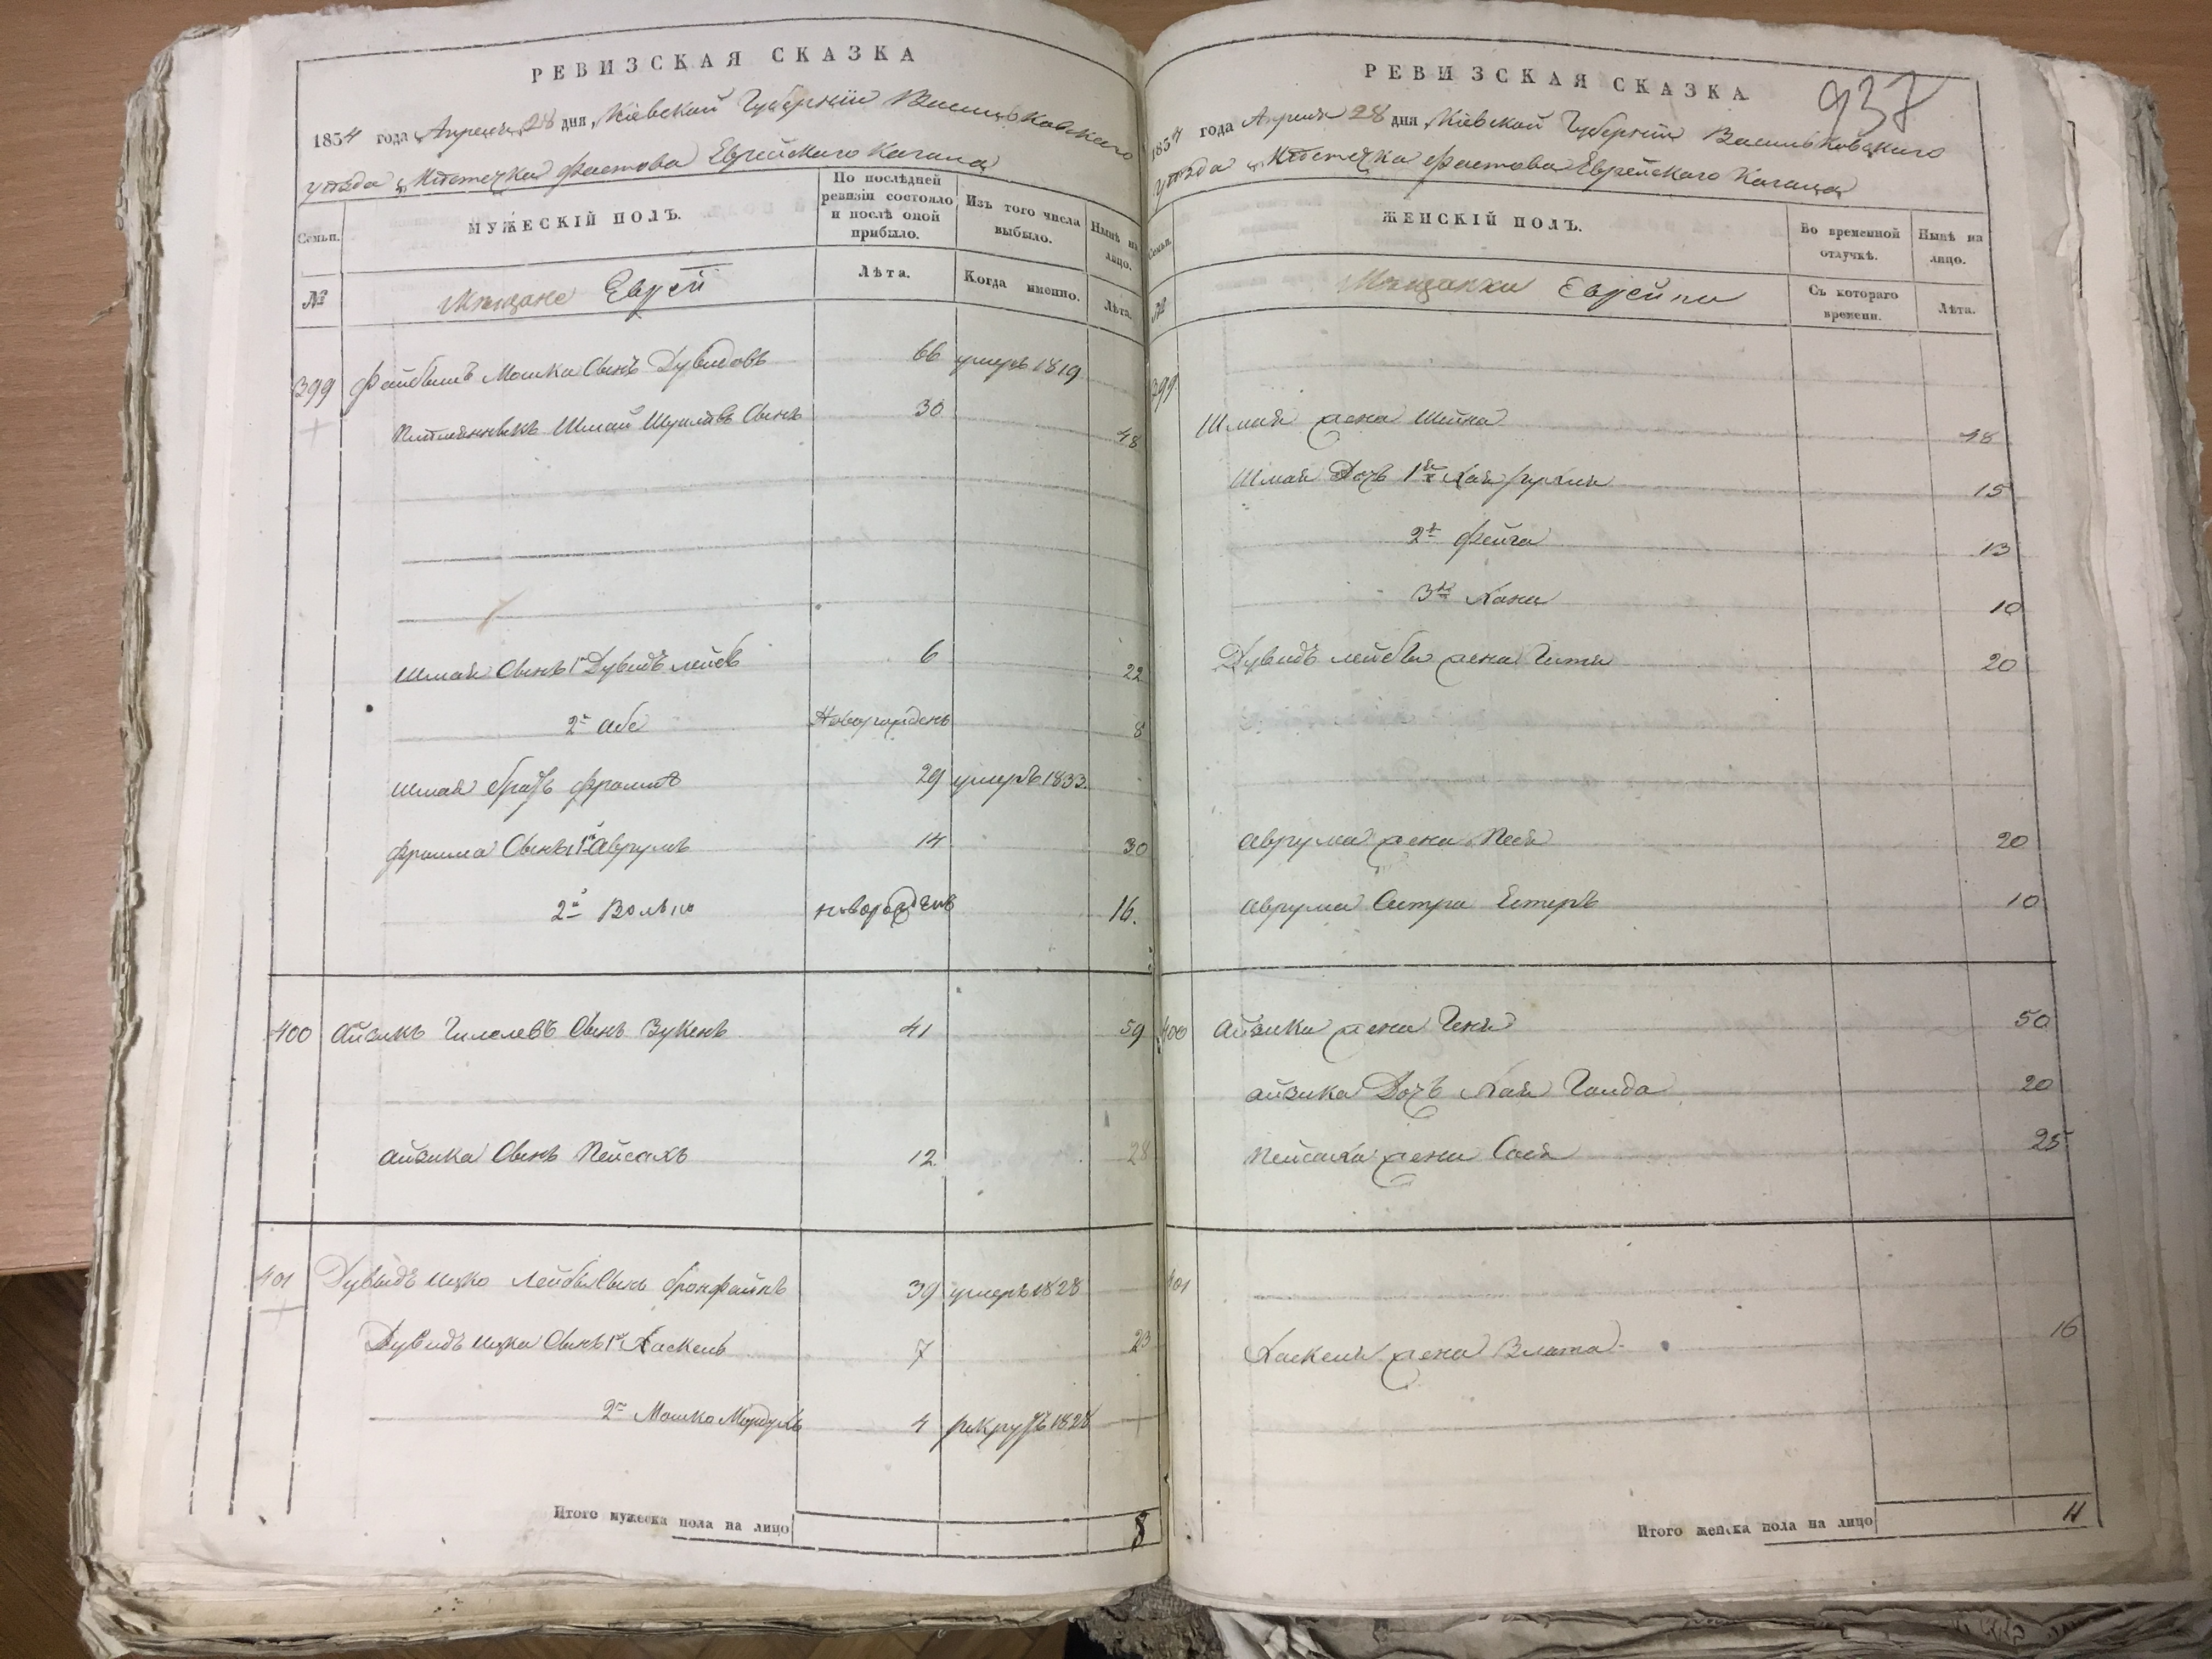 РЕВИЗСКАЯ СКАЗКА
1834 года Апреля 28 дня Кіевской Губерніи Васильковского
уѣзда Мѣстечка Фастова Еврейского Кагала
Семьи.
МУЖЕСКІЙ ПОЛЪ.
По послѣдней ревизіи состояло и послѣ оной прибыло.
Изъ того числа выбыло.
Нынѣ на лицо.
№
Мѣщане Евреи
Лѣта.
Когда именно.
Лѣта.
399 Мошка Сынъ Дувидовъ 66 умеръ 1819
Племянникъ Шмай Сынъ 30 48
Шмая Сынъ 1й Дувидъ лейба 6 22
2й абе Новорожденъ 8
Шмая братъ фроимъ 29 умеръ 1833.
Фроима Сынъ 1й Аврумъ 14 30
2й новорожденъ 16.
400 Айзикъ Сынъ Зукенъ 41 59
Айзика Сынъ Пейсахъ 12 28
401 Дувидъ Ицко Лейбы Сынъ бронфайнъ 39 умеръ 1828
Дувидъ Ицка Сынъ 1й Хаскель 7 23
2й Мошко Мордухъ 4 рекрутъ 1828
Итого мужеска пола на лицо 8
937
РЕВИЗСКАЯ СКАЗКА
1834 года Апреля 28 дня Кіевской Губерніи Васильковского
уѣзда Мѣстечка Фастова Еврейского Кагала
Семьи.
ЖЕНСКІЙ ПОЛЪ.
Во временной отлучкѣ.
Нынѣ на лицо.
№
Мѣщанки Еврейки
Съ котораго времени.
Лѣта.
399
Шмая жена Шейна 48
Шмая Дочь 1я Хая 15
2я Фейга 13
3я Хана 10
Дувидъ лейбы жена Гитя 20
Аврума жена Песя 20
Аврума Сестра Естеръ 10
400 Айзика жена Геня 50
Айзика Дочь Хая Голда 20
Пейсаха жена Сося 25
401
Хаскеля жена Злата 16
Итого женска пола на лицо 11